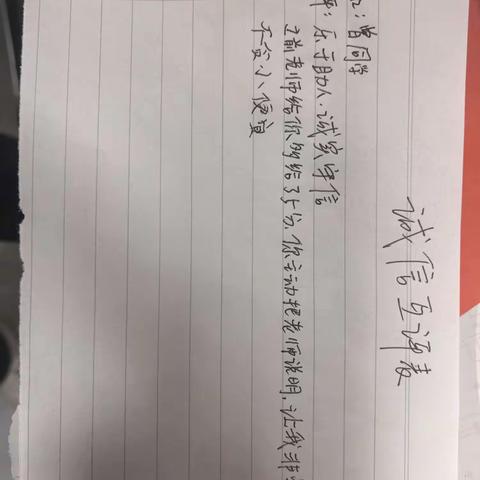 诚信互评表
：曾同学
评：乐于助人、诚实守信
之前老师给你多给了5分，你主动跟老师说明，让我非
不贪小便宜